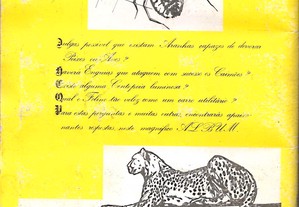 Julgas possível que existam Aranhas capazes de devorar
Peixes ou Aves?
Haverá Enguias que ataquem com sucesso os Caimões?
Existe alguma Centopeia luminosa?
Qual o Felino tão veloz como um carro utilitário?
Para estas perguntas e muitas outras, encontrarás apaixo-
nantes respostas, neste magnífico ALBUM.